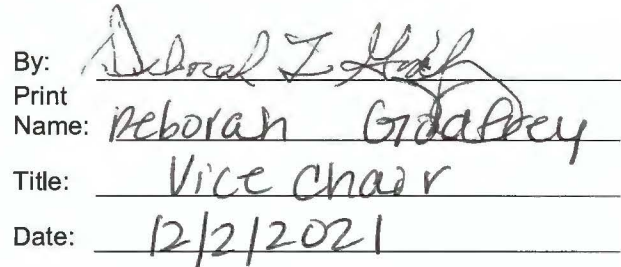 By: Deborah L Godfrey
Print
Name: Deborah Godfrey
Title: Vice Chair
Date: 12/2/2021